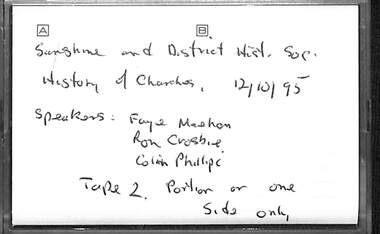 A B
Sunshine and District Hist. Soc.
History of Churches, 12/10/95
Speakers: Faye
Ron Crosbie
Colin Phillips
Tape 2. Portion on one
side only